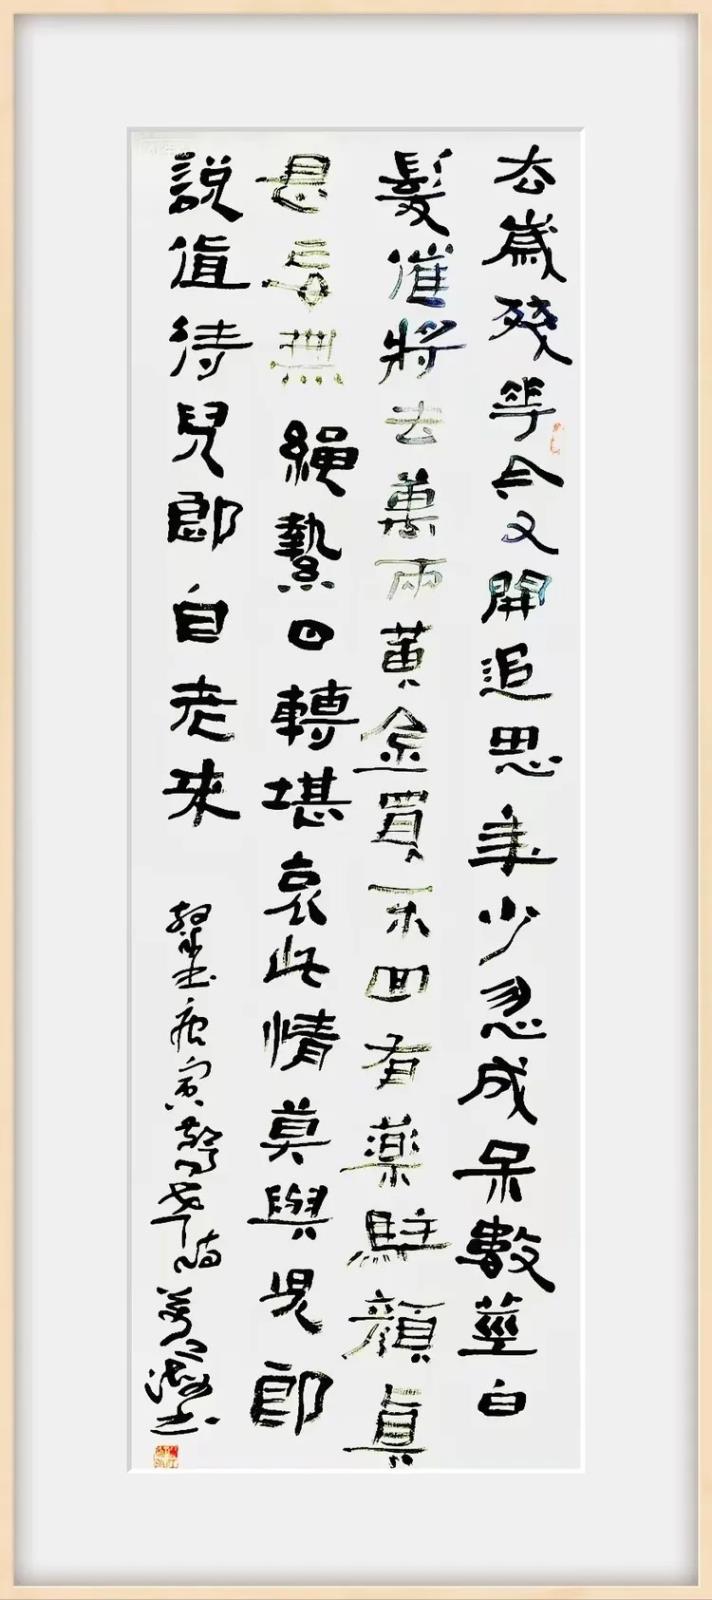 去歲殘花今又開追思年少忽成呆數莖白
髮催將去萬兩黃金買不回有藥駐顏真
是妄無繩繫日轉堪哀此情莫與兒郎
說直待兒郎自老來
唐寅